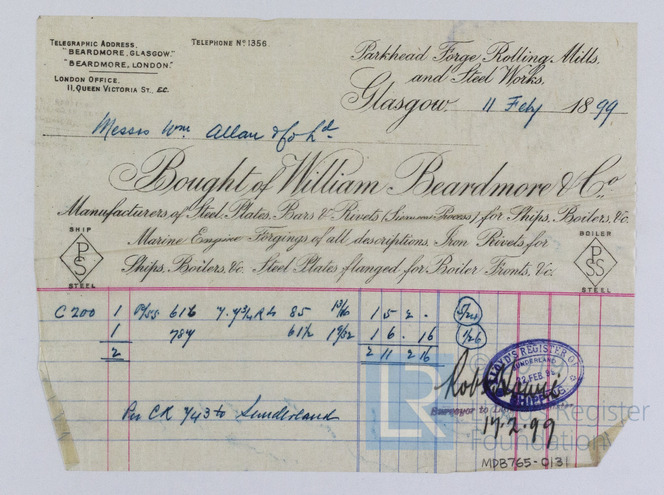 TELEGRAPHIC ADDRESS,
"BEARDMORE, GLASGOW."
"BEARDMORE, LONDON."
LONDON OFFICE.
11, QUEEN VICTORIA ST., E.C.
TELEPHONE No 1356.
Parkhead Forge Rolling Mills.
and Steel Works.
Glasgow 11 Feby 1899
Messrs Wm Allan & Co Ld
Bought of William Beardmore & Co.
Manufacturers of Steel Plates, Bars & Rivets (Siemens Process) for Ships, Boilers, &c.
Marine Engine Forgings of all descriptions, Iron Rivets for
Ships, Boilers, &c. Steel Plates flanged for Boiler Fronts, &c.
SHIP
PS
STEEL
BOILER
PSS
STEEL
C 200 1 616 85 13/16 1 5 2 .
1 784 61½ 19/32 1 6 . 16
2 2 11 2 16
Per CR 743 to Sunderland
LLOYD'S REGISTER OF
SUNDERLAND
FEB
Surveyor to
17.2.99
LR
Lloyd's Register
Foundation
MDB765-0131